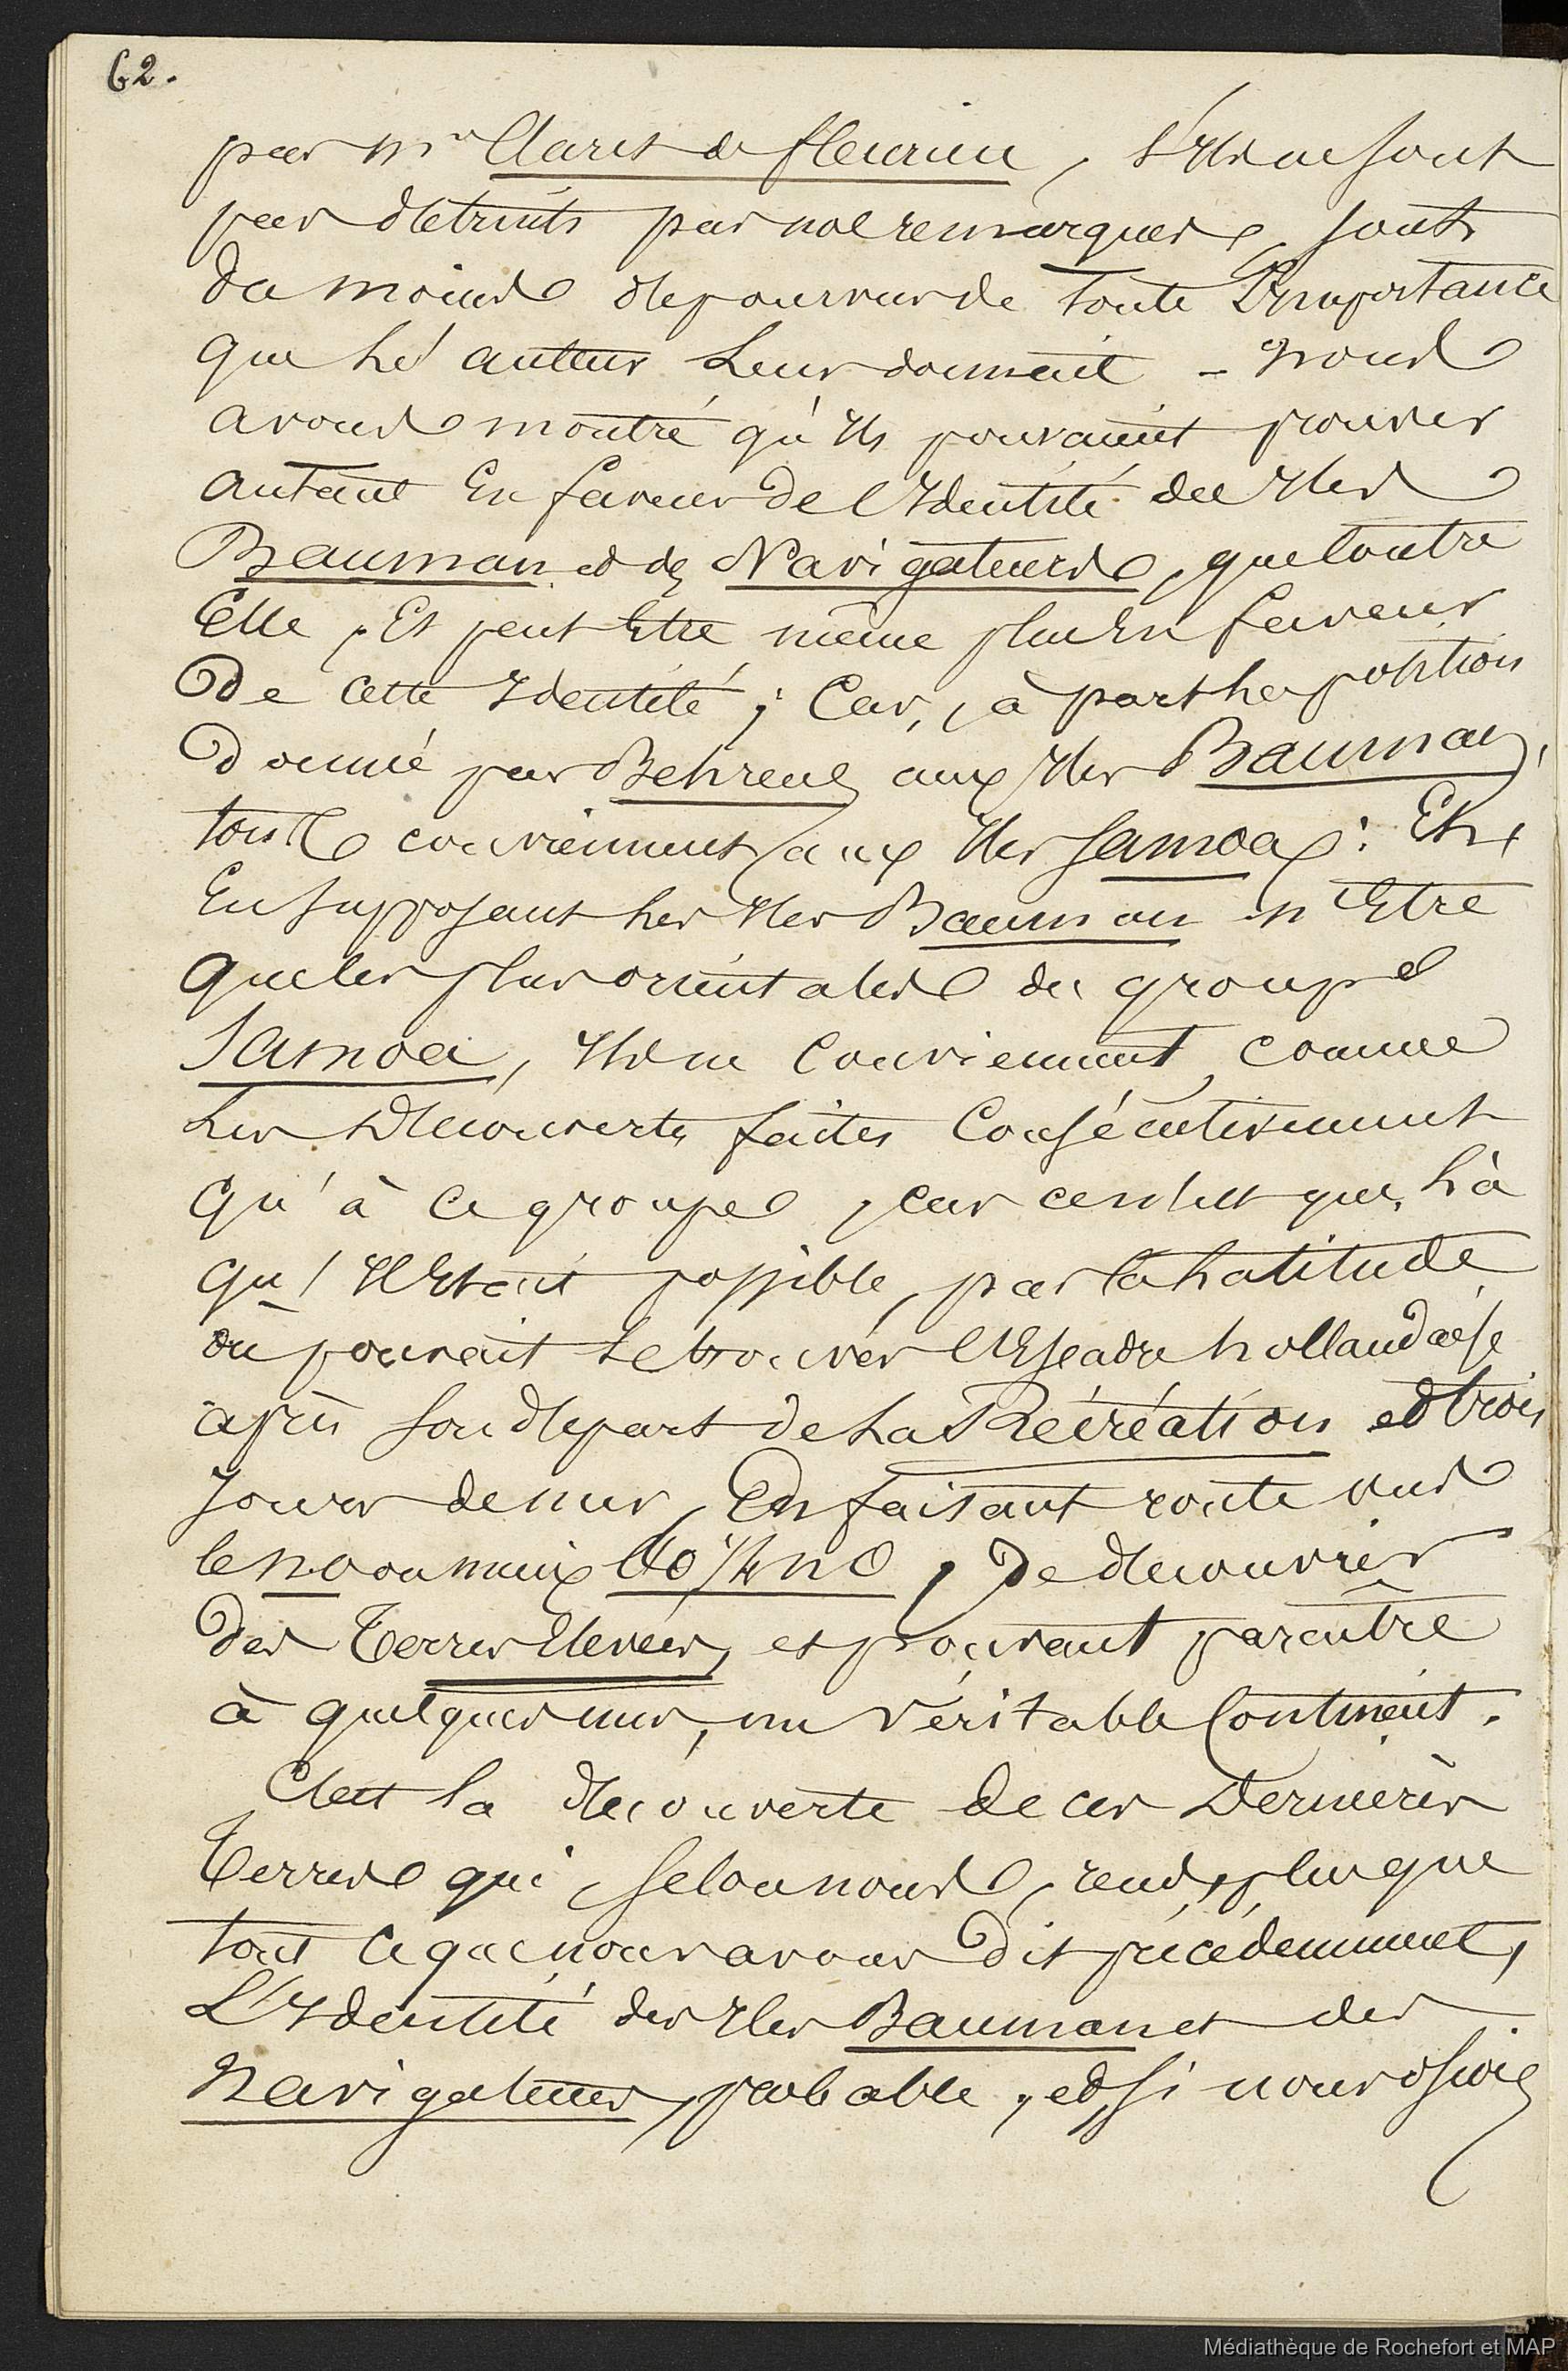 62.
par Mr Claret de fleurieu, s'Ils ne sont
pas détruits par nos remarques, sont
du moins dépourvus de toute l'Importance
que le auteur leur donnait - nous
avons montré qu'Ils pouvaient prouver
autant En faveur de l'Identité des Iles
Bauman et des Navigateurs, que contre
Elle, Et peut Etre même plus En faveur
De cette Identité ; Car, à part la position
Donnée par Behrens aux Iles Bauman,
tous conviennent aux Iles Samoa : Et,
En supposant les Iles Bauman n'Etre
que les plus orientales du groupe
Samoa, Ils ne Conviennent, comme
les Découvertes faites Consécutivement
qu'à ce groupe, car ce n'est que là
qu'Il Etait possible, par la latitude
où pouvait se trouver l'Escadre hollandaise
après son départ de La Récréation et trois
Jours de mer, En faisant route vers
le no ou mieux l'o 1/4 no, De découvrir
des Terres Elevées, et pouvant paraître
à quelques uns, un véritable Continent.
C'est la découverte de ces Dernières
Terres qui, selon nous, rend, plus que
tout ce que nous avons Dit précédemment,
L'Identité des Iles Bauman et des
Navigateurs, probable, et, si nous osions
Médiathèque de Rochefort et MAP